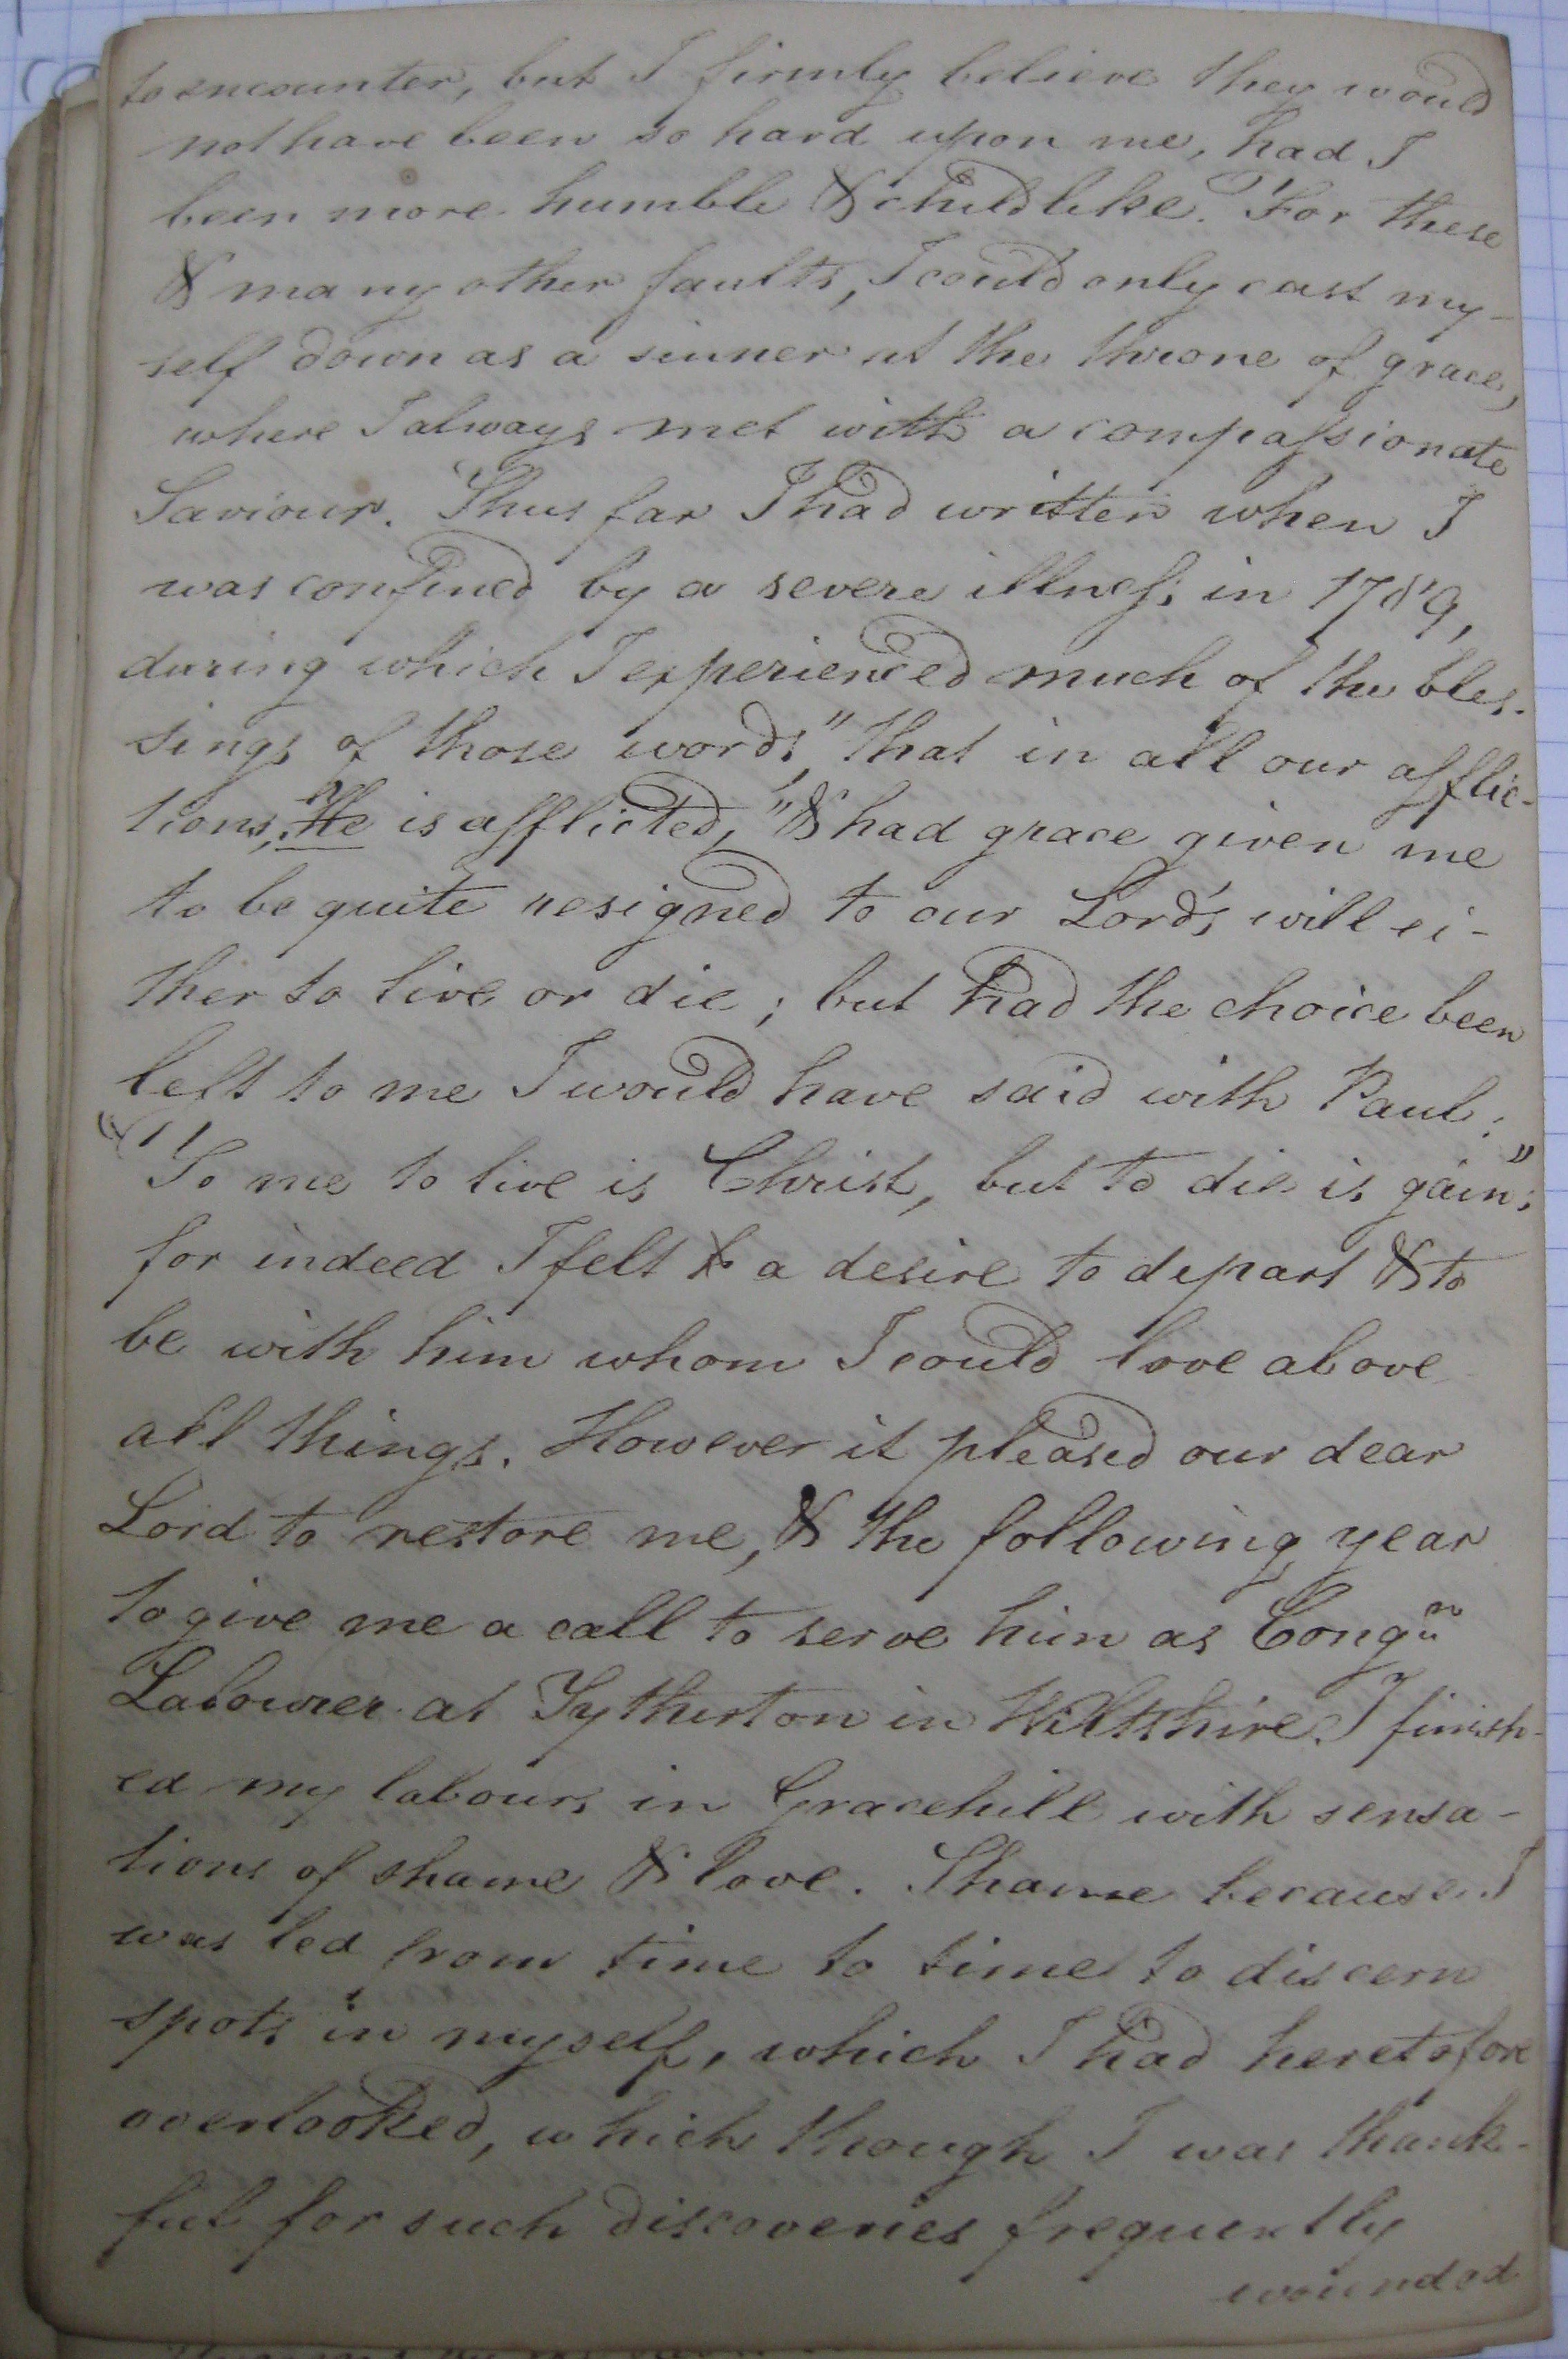 to encounter, but I firmly believe they would
not have been so hard upon me, had I
been more humble & childlike. For these
& many other faults, I could only cast my-
self down as a sinner at the throne of grace,
where I always met with a compaſsionate
Saviour. Thus far I had written when I
was confined by a severe illneſs in 1789,
during which I experienced much of the bles-
sings of those words, "that in all our afflic-
tions, He is afflicted," & had grace given me
to be quite resigned to our Lord's will ei-
ther to live or die; but had the choice been
left to me I would have said with Paul:
"To me to live is Christ, but to die is gain";
for indeed I felt a desire to depart & to
be with him whom I could love above
all things. However it pleased our dear
Lord to restore me, & the following year
to give me a call to serve him as Congn
Labourer at Tytherton in Wiltshire. I finish-
ed my labours in Gracehill with sensa-
tions of shame & love. Shame because I
was led from time to time to discern
spots in myself, which I had heretofore
overlooked, which though I was thank-
ful for such discoveries frequently
wounded